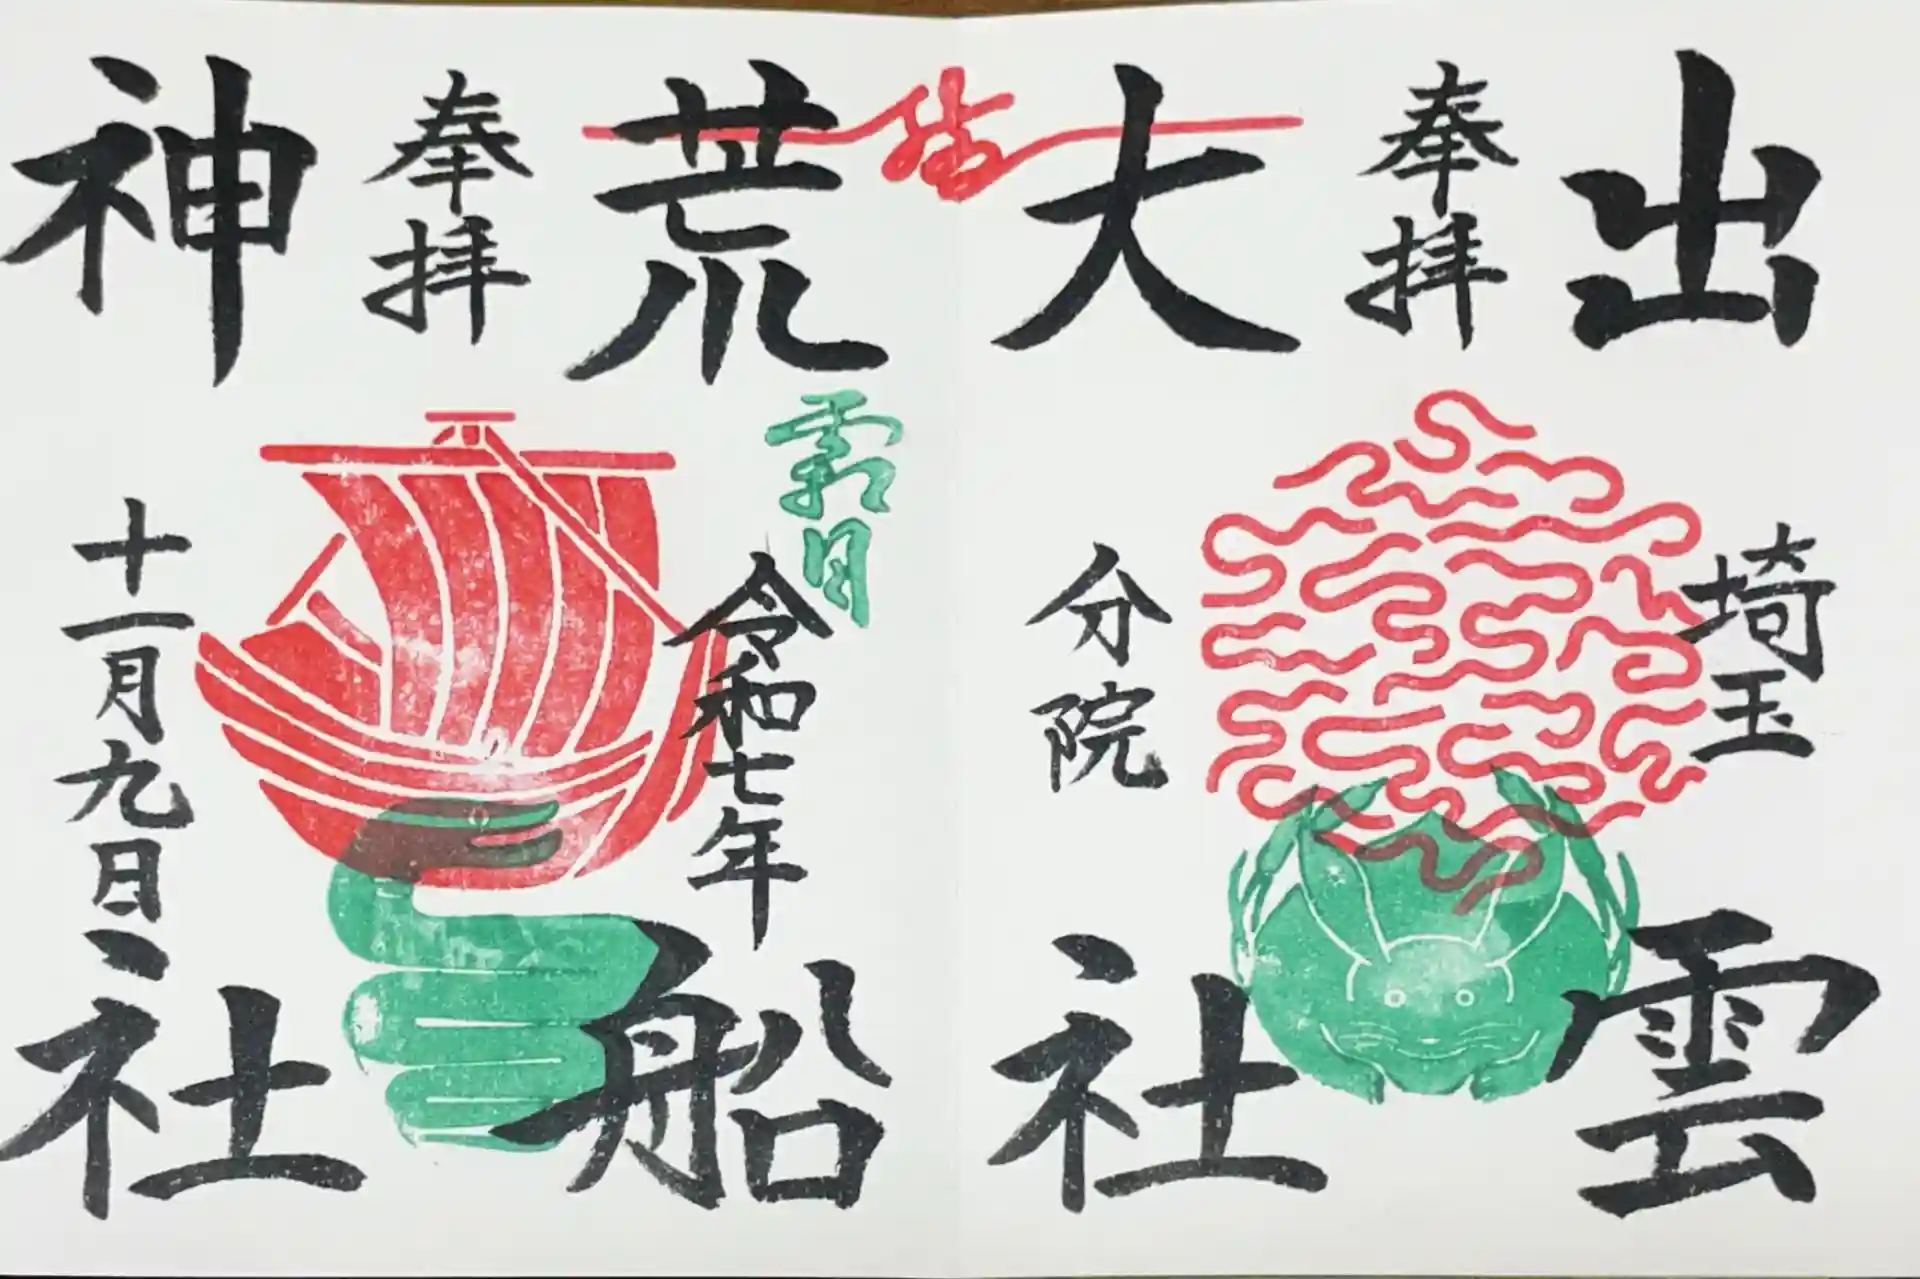 出雲
奉拝
埼玉
大社
分院
荒船
霜月
令和七年
奉拝
神社
十一月九日